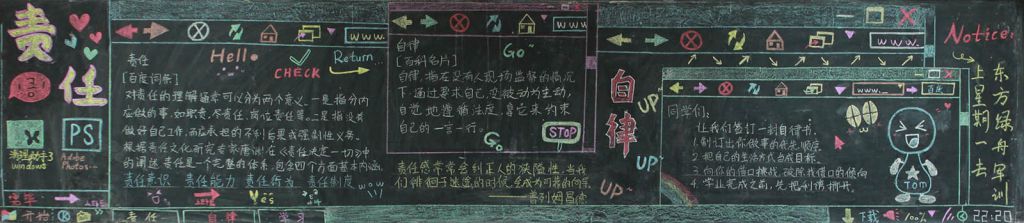 责任
Hello
CHECK
Return
www.
责任
[百度词条]
对责任的理解通常可以分为两个意义。一是指分内
应做的事,如职责,尽责任,岗位责任等。二是指没有
做好自己工作,而应承担的不利后果或强制性义务。
责任是一个完整的体系,包含四个方面基本内涵,
责任意识 责任能力 责任行为 责任制度
wow
Yes
PS
Adobe
Photos
windows
开始
责任
自律
学习
www
Go
自律
[百科名片]
自律,指在没有人现场监督的情况
下,通过要求自己,变被动为主动,
自觉地遵循法度,拿它来约束
自己的一言一行。
Go
STOP
责任感常常会纠正人的狭隘性,当我
们徘徊于迷途的时候,它会成为可靠的向导。
——普列姆昌德
自律
UP
UP
UP
www.
同学们:
让我们签订一封自律书。
1.制订出你做事的优先顺序
2.把自己的生活方式当成目标。
3.向你的借口挑战,破除找借口的倾向
4.学业完成之前,先把利诱挪开。
Tom
Notice:
东方绿舟早训
上星期一去
下载
100%
22:20